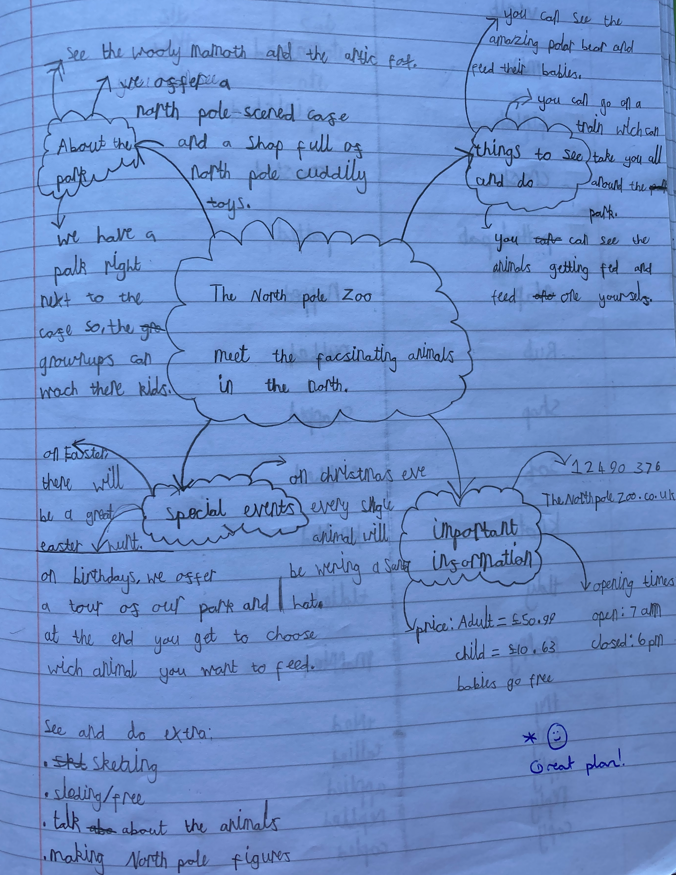 see the wooly mamoth and the artic fox.
we offer a
north pole-scened cafe
and a shop full of
north pole cuddily
toys.
About the
park
we have a
palk right
next to the
cafe so, the
grownups can
wach there kids.
you can see the
amazing polar bear and
feed their babies.
you can go on a
train wich can
take you all
around the
park.
things to see
and do
you can see the
animals getting fed and
feed one yourself.
The North pole Zoo
meet the facsinating animals
in the north.
on Easter,
there will
be a great
easter hunt.
Special events
on christmas eve
every single
animal will
be wering a
hat.
on birthdays, we offer
a tour of our park and
at the end you get to choose
wich animal you want to feed.
important
information
12490 376
TheNorthpoleZoo.co.uk
opening times
open: 7am
closed: 6pm
price: Adult = £50.99
child = £10.63
babies go free
See and do extra:
. sketing
. sleding/free
. talk about the animals
. making North pole figures
* Great plan!